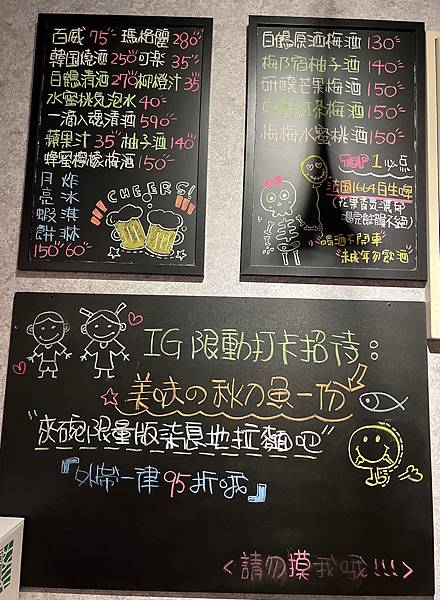 百威 75 瑪格麗 280
韓國燒酒 250 可樂 35
白鶴清酒 270 柳橙汁 35
水蜜桃氣泡水 40
一滴入魂清酒 590
蘋果汁 35 柚子酒 140
蜂蜜檸檬梅酒 150
月亮蝦餅 150
炸冰淇淋 60
CHEERS!
白鶴原酒梅酒 130
梅乃宿柚子酒 140
研釀芒果梅酒 150
紅茶梅酒 150
梅梅水蜜桃酒 150
TOP 1 必點
法國1664白啤
(花果香氣濃郁
喝完餘韻不絕)
喝酒不開車
未成年勿飲酒
IG 限動打卡招待:
美味の秋刀魚一份
"夾碗限量版柒息地拉麵吧"
『外帶一律95折哦』
<請勿摸我哦!!!>